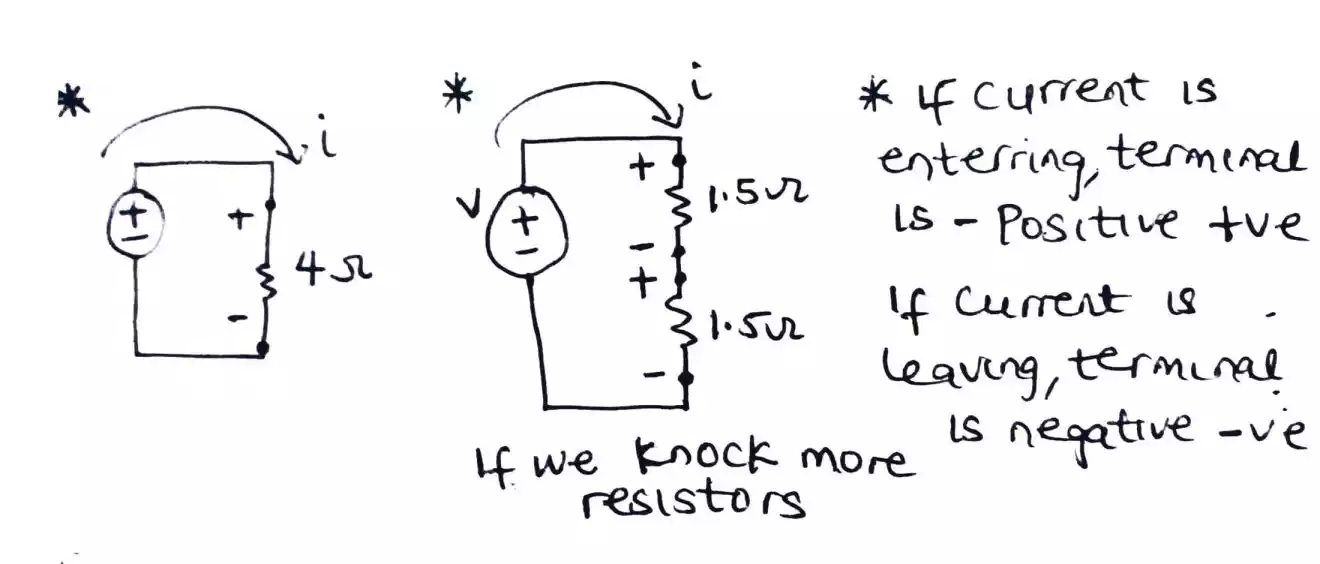 * i
+
-
+
-
4Ω
* i
V
+
-
+
-
+
-
1.5Ω
1.5Ω
If we knock more
resistors
* If current is
enterring, terminal
is - Positive +ve
If current is
leaving, terminal
is negative -ve